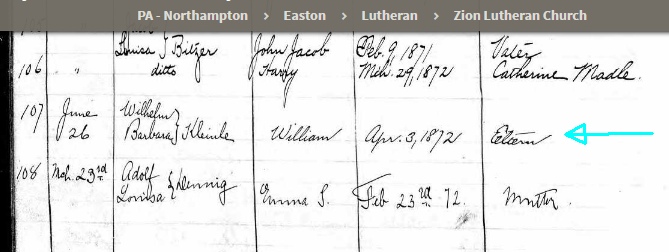 PA - Northampton > Easton > Lutheran > Zion Lutheran Church
Louisa J Bitzer John Jacob Feb. 9, 1871 Vater
106 " ditto Harry Mch. 29, 1872 Catherine Madle.
107 June Wilhelm
26 Barbara } Kleinle William Apr. 3, 1872 Eltern
108 Mch. 23rd Adolf
Louisa } Hennig Emma S. Feb 23rd 72. Mutter.